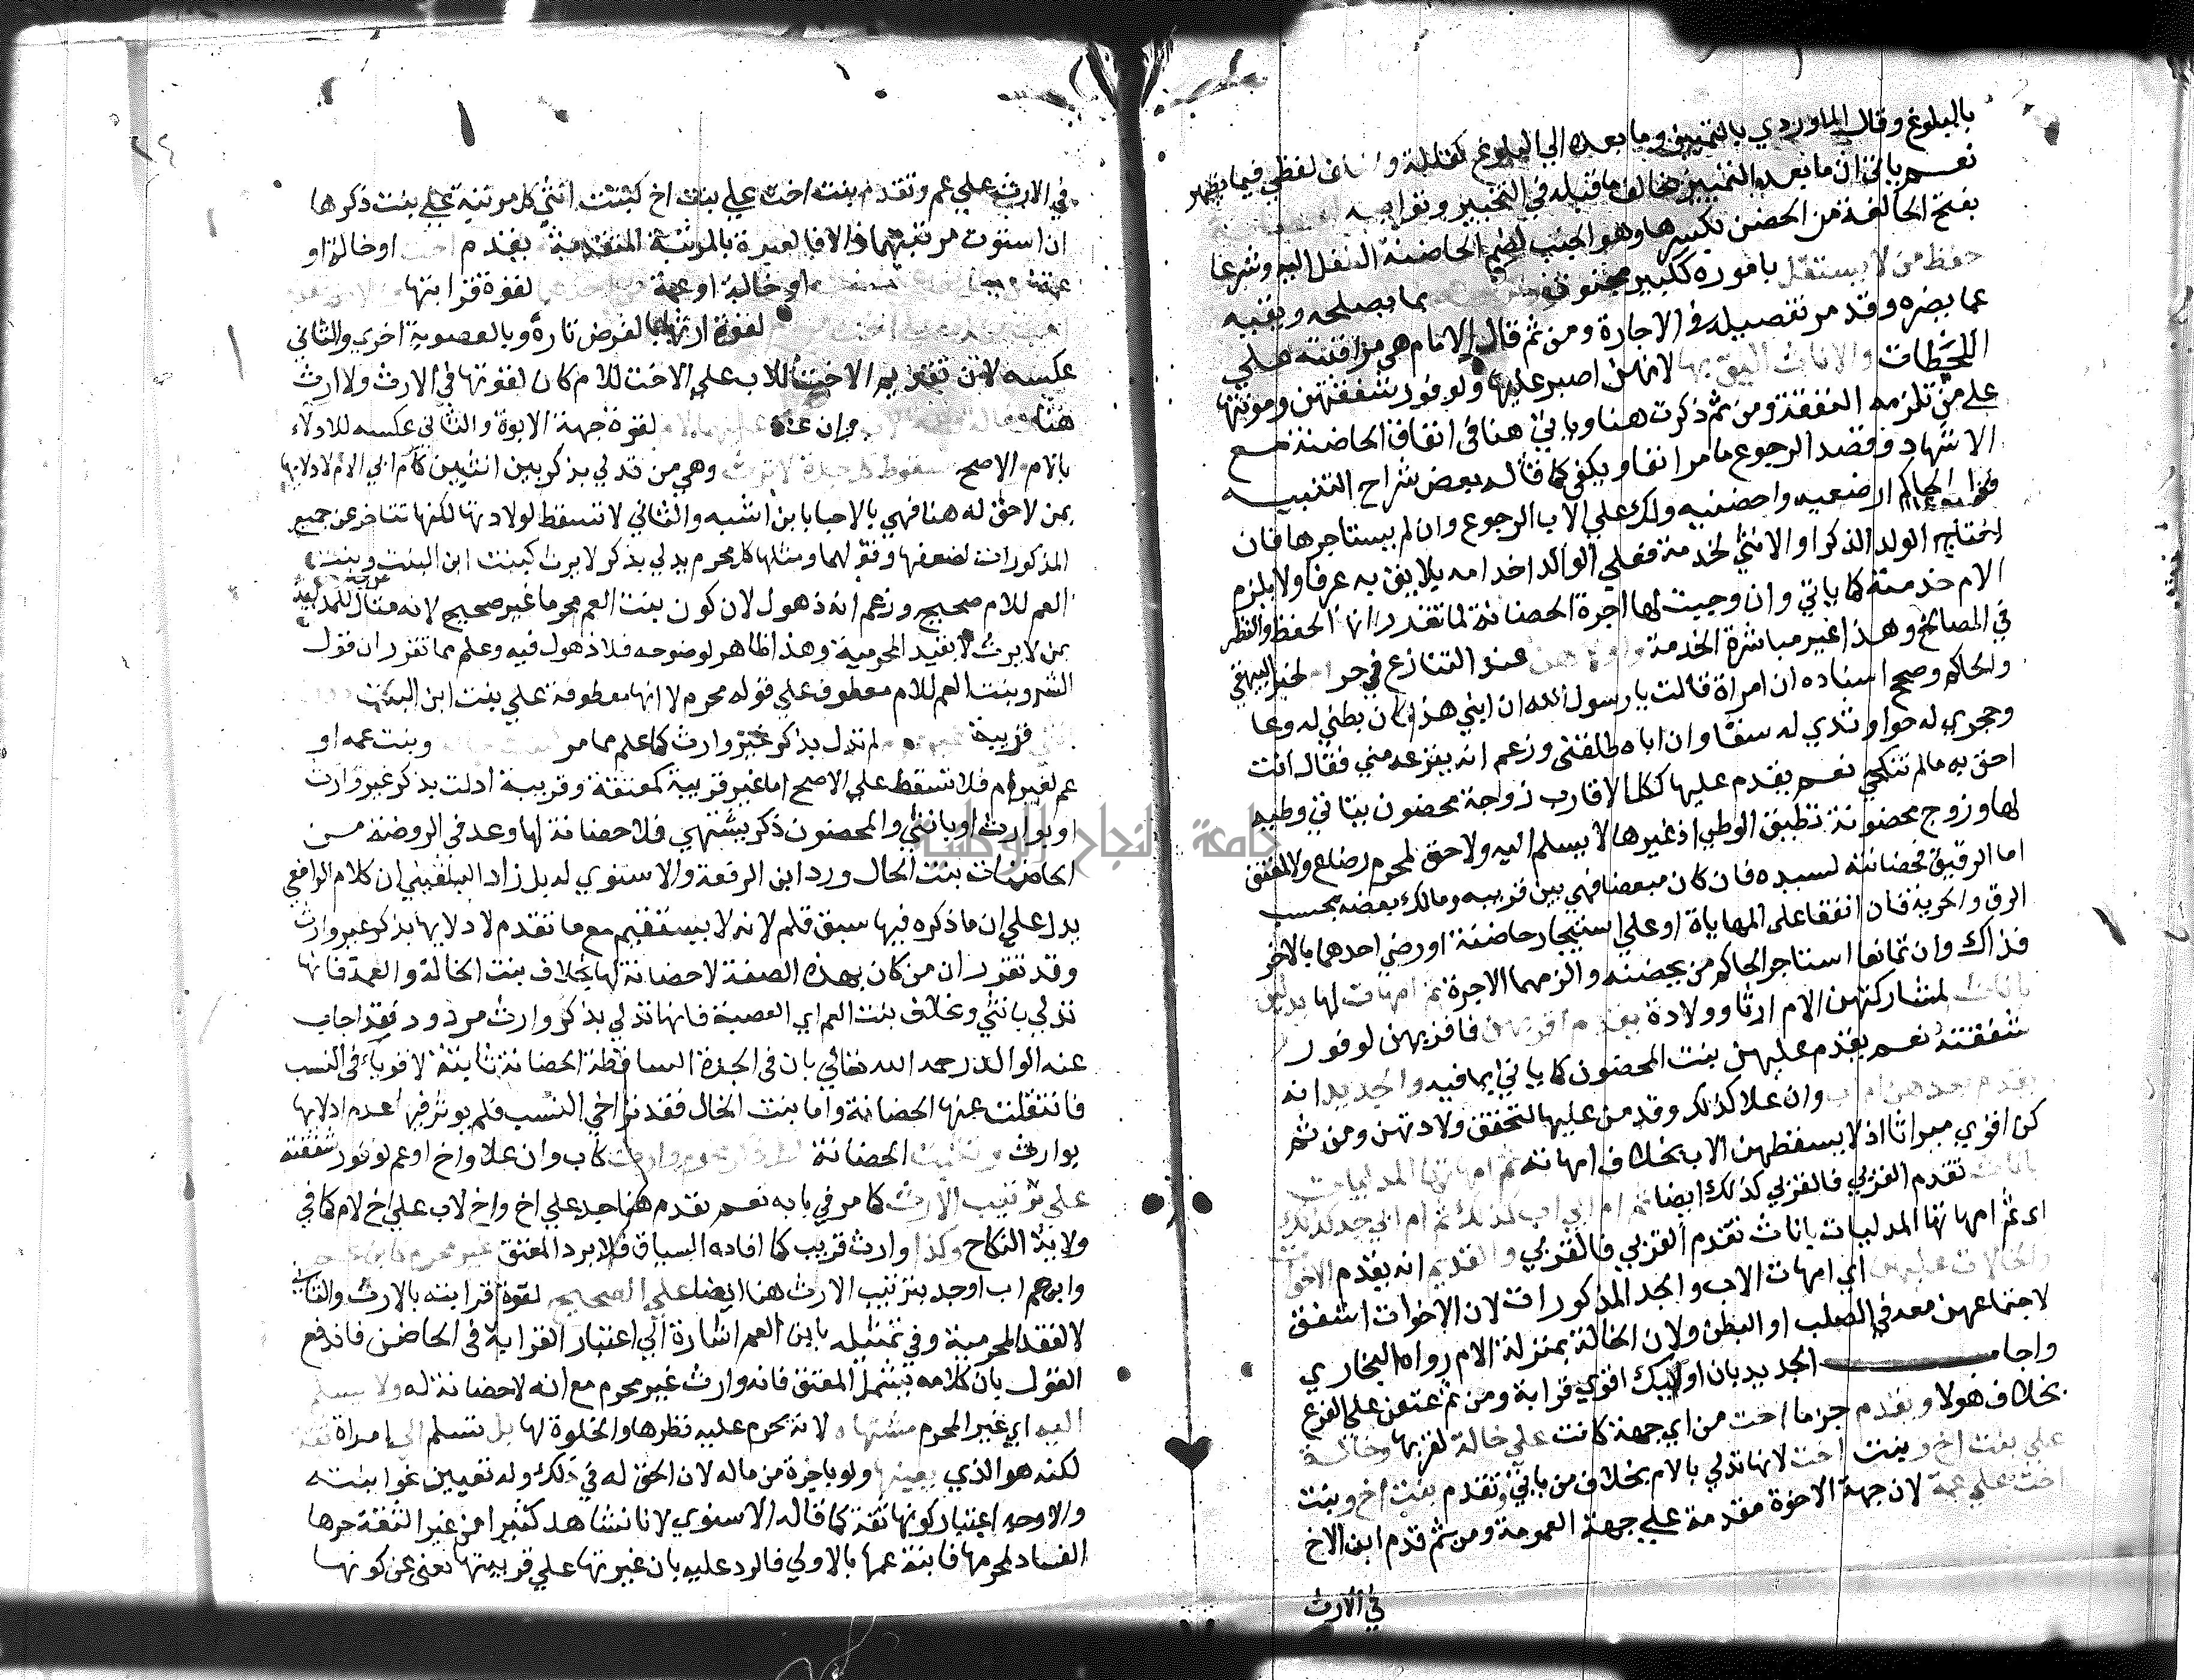 بالبلوغ وقال الماوردي بالتمييز وما بعده الي البلوغ كفالة و لفظي فيما يظهر
نعم ياتي ان ما بعد التمييز يخالف ما قبله في التخيير وتوابعه
بفتح الحا لغة من الحضن بكسرها وهو الجنب لضم الحاضنة الطفل اليه وشرعا
حفظ من لا يستقل باموره ككبير مجنون بما يصلحه ويقيه
عما يضره وقد مر تفصيله في الاجارة ومن ثم قال الامام هي مراقبته علي
اللحظات والاناث اليق بها لانهن اصبر عليها ولوفور شفقتهن ومونتها
علي من تلزمه النفقة ومن ثم ذكرت هنا وياتي هنا في انفاق الحاضنة مع
الاشهاد وقصد الرجوع ما مر انفا ويكفي كما قاله بعض شراح التنبيه
قول الحاكم ارضعيه واحضنيه ولك علي الاب الرجوع وان لم يستاجرها فان
احتاج الولد الذكر او الانثي لخدمة فعلي الوالد اخدامه بلايق به عرفا ولا يلزم
الام خدمته كما ياتي وان وجبت لها اجرة الحضانة لما تقرر انها الحفظ والنظر
في المصالح وهذا غير مباشرة الخدمة واولاهن عند التنازع في حر لخبر البيهقي
والحاكم وصحح اسناده ان امراة قالت يا رسول الله ان ابني هذا كان بطني له وعا
وحجري له حوا وثدي له سقا وان اباه طلقني وزعم انه ينزعه مني فقال انت
احق به ما لم تنكحي نعم يقدم عليها ككل الاقارب زوجة محضون يتاتي وطيه
لها وزوج محضونة تطيق الوطي اذ غيرها لا يسلم اليه ولا حق لمحرم رضاع ولا لمعتق
اما الرقيق فحضانته لسيده فان كان مبعضا فهي بين قريبه ومالك بعضه بحسب
الرق والحرية فان اتفقا علي المهاياة او علي استيجار حاضنة او رضي احدهما بالاخر
فذاك وان تمانعا استاجر الحاكم من يحضنه والزمهما الاجرة ثم امهات لها يدلين
باناث لمشاركتهن الام ارثا وولادة يقدم اقربهن فاقربهن لوفور
شفقته نعم يقدم عليهن بنت المحضون كما ياتي بما فيه والجديد انه
يقدم بعدهن ام اب وان علا كذلك وقد من عليها لتحقق ولادتهن ومن ثم
كن اقوي ميراثا اذ لا يسقطهن الاب بخلاف امهاته ثم امهاتها المدليات
باناث تقدم القربي فالقربي كذلك ايضا ثم ام ابي اب كذلك ثم ام ابي جد كذلك
اي ثم امهاتها المدليات باناث تقدم القربي فالقربي والقديم انه يقدم الاخوات
والخالات عليهن اي امهات الاب والجد المذكورات لان الاخوات اشفق
لاجتماعهن معه في الصلب او البطن ولان الخالة بمنزلة الام رواه البخاري
واجاب الجديد بان اوليك اقوي قرابة ومن ثم عتقن علي الفرع
بخلاف هولا ويقدم جزما اخت من اي جهة كانت علي خالة لقربها وخالة
علي بنت اخ وبنت اخت لانها تدلي بالام بخلاف من ياتي وتقدم بنت اخ وبنت
اخت علي عمة لان جهة الاخوة مقدمة علي جهة العمومة ومن ثم قدم ابن الاخ
في الارث
في الارث علي عم وتقدم بنت اخت علي بنت اخ كبنت انثي كل مرتبة علي بنت ذكرها
ان استوت مرتبتهما والا فالعبرة بالمرتبة المتقدمة يقدم اخت او خالة او
عمة او خالة او عمة لقوة قرابتها
لقوة ارثها بالفرض تارة وبالعصوبة اخري والثاني
عكسه لان تقديم الاخت للاب علي الاخت للام كان لقوتها في الارث ولا ارث
هنا لقوة جهة الابوة والثاني عكسه للادلاء
بالام الاصح سقوط كل جدة لا ترث وهي من تدلي بذكر بين انثيين كام ابي الام لادلايها
بمن لا حق له هنا فهي بالاجانب اشبه والثاني لا تسقط لولادتها لكنها تتاخر عن جميع
المذكورات لضعفها ومثلها كل محرم يدلي بذكر لا يرث كبنت ابن البنت وبنت
العم للام صحيح وزعم انه ذهول لان كون بنت العم محرما غير صحيح لانه مثال للمدلية
بمن لا يرث لا بقيد المحرمية وهذا ظاهر لوضوحه فلا ذهول فيه وعلم مما تقرر ان قول
الشر وبنت العم للام معطوف علي قوله محرم لا انها معطوفة علي بنت ابن البنت
قريبة لم تدل بذكر غير وارث كما علم مما مر وبنت عمه او
عم لغير ام فلا تسقط علي الاصح اما غير قريبة كمعتقة وقريبة ادلت بذكر غير وارث
او بوارث او بانثي والمحضون ذكر يشتهي فلا حضانة لها وعد في الروضة من
الحاضنات بنت الخال ورد ابن الرفعة والاسنوي له بل زاد البلقيني ان كلام الرافعي
يدل علي ان ما ذكره فيها سبق قلم لانه لا يستقيم مع ما تقدم لادلايها بذكر غير وارث
وقد تقرر ان من كان بهذه الصفة لا حضانة لها بخلاف بنت الخالة والعمة فانها
تدلي بانثي وبخلاف بنت العم اي العصبة فانها تدلي بذكر وارث مردود فقد اجاب
عنه الوالد رحمه الله تعالي بان في الجدة الساقطة الحضانة ثابتة لاقوياء في النسب
فانتقلت عنها الحضانة واما بنت الخال فقد تراخي النسب فلم يوثر فيها عدم ادلايها
بوارث وتثبت الحضانة لكل ذكر محرم وارث كاب وان علا واخ او عم لوفور شفقته
علي ترتيب الارث كما مر في بابه نعم تقدم هنا جد علي اخ واخ لاب علي اخ لام كما في
ولاية النكاح وكذا وارث قريب كما افاده السياق فلا يرد المعتق غير محرم كابن عم
وابن عم اب او جد بترتيب الارث هنا ايضا علي الصحيح لقوة قرابته بالارث والثاني
لا لفقد المحرمية وفي تمثيله بابن العم اشارة الي اعتبار القرابة في الحاضن فاندفع
القول بان كلامه يشمل المعتق فانه وارث غير محرم مع انه لا حضانة له ولا يسلم
اليه اي غير المحرم مشتهاه لانه يحرم عليه نظرها والخلوة لها بل تسلم الي امراة ثقة
لكنه هو الذي يعينها ولو باجرة من ماله لان الحق له في ذلك وله تعيين نحو ابنته
والاوجه اعتبار كونها ثقة كما قاله الاسنوي لانا نشاهد كثيرا من غير الثقة جرها
الفساد لمحرمها فابنة عمها بالاولي فالرد عليه بان غيرتها علي قريبتها تغني عن كونها